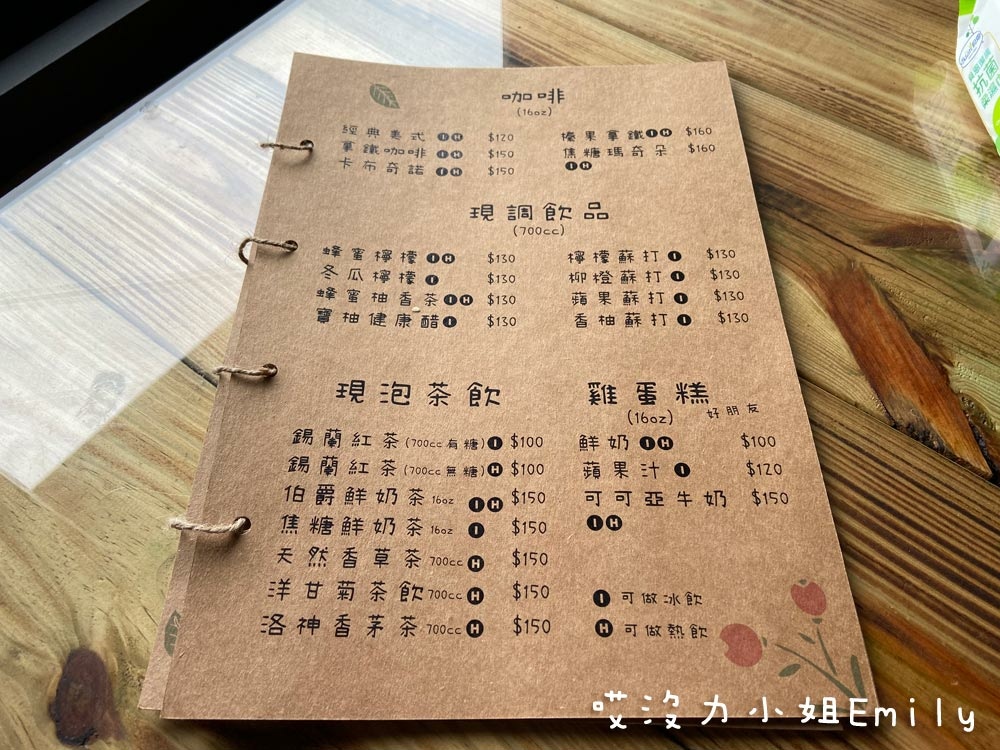 咖啡
(16oz)
經典美式 I H $120
拿鐵咖啡 I H $150
卡布奇諾 I H $150
榛果拿鐵 I H $160
焦糖瑪奇朵 $160
I H
現調飲品
(700cc)
蜂蜜檸檬 I H $130
冬瓜檸檬 I $130
蜂蜜柚香茶 I H $130
寶柚健康醋 I $130
檸檬蘇打 I $130
柳橙蘇打 I $130
蘋果蘇打 I $130
香柚蘇打 I $130
現泡茶飲
錫蘭紅茶(700cc有糖) I $100
錫蘭紅茶(700cc無糖) H $100
伯爵鮮奶茶16oz I H $150
焦糖鮮奶茶16oz I $150
天然香草茶700cc H $150
洋甘菊茶飲700cc H $150
洛神香茅茶700cc H $150
雞蛋糕
(16oz) 好朋友
鮮奶 I H $100
蘋果汁 I $120
可可亞牛奶 $150
I H
I 可做冰飲
H 可做熱飲
抗菌
哎沒力小姐Emily